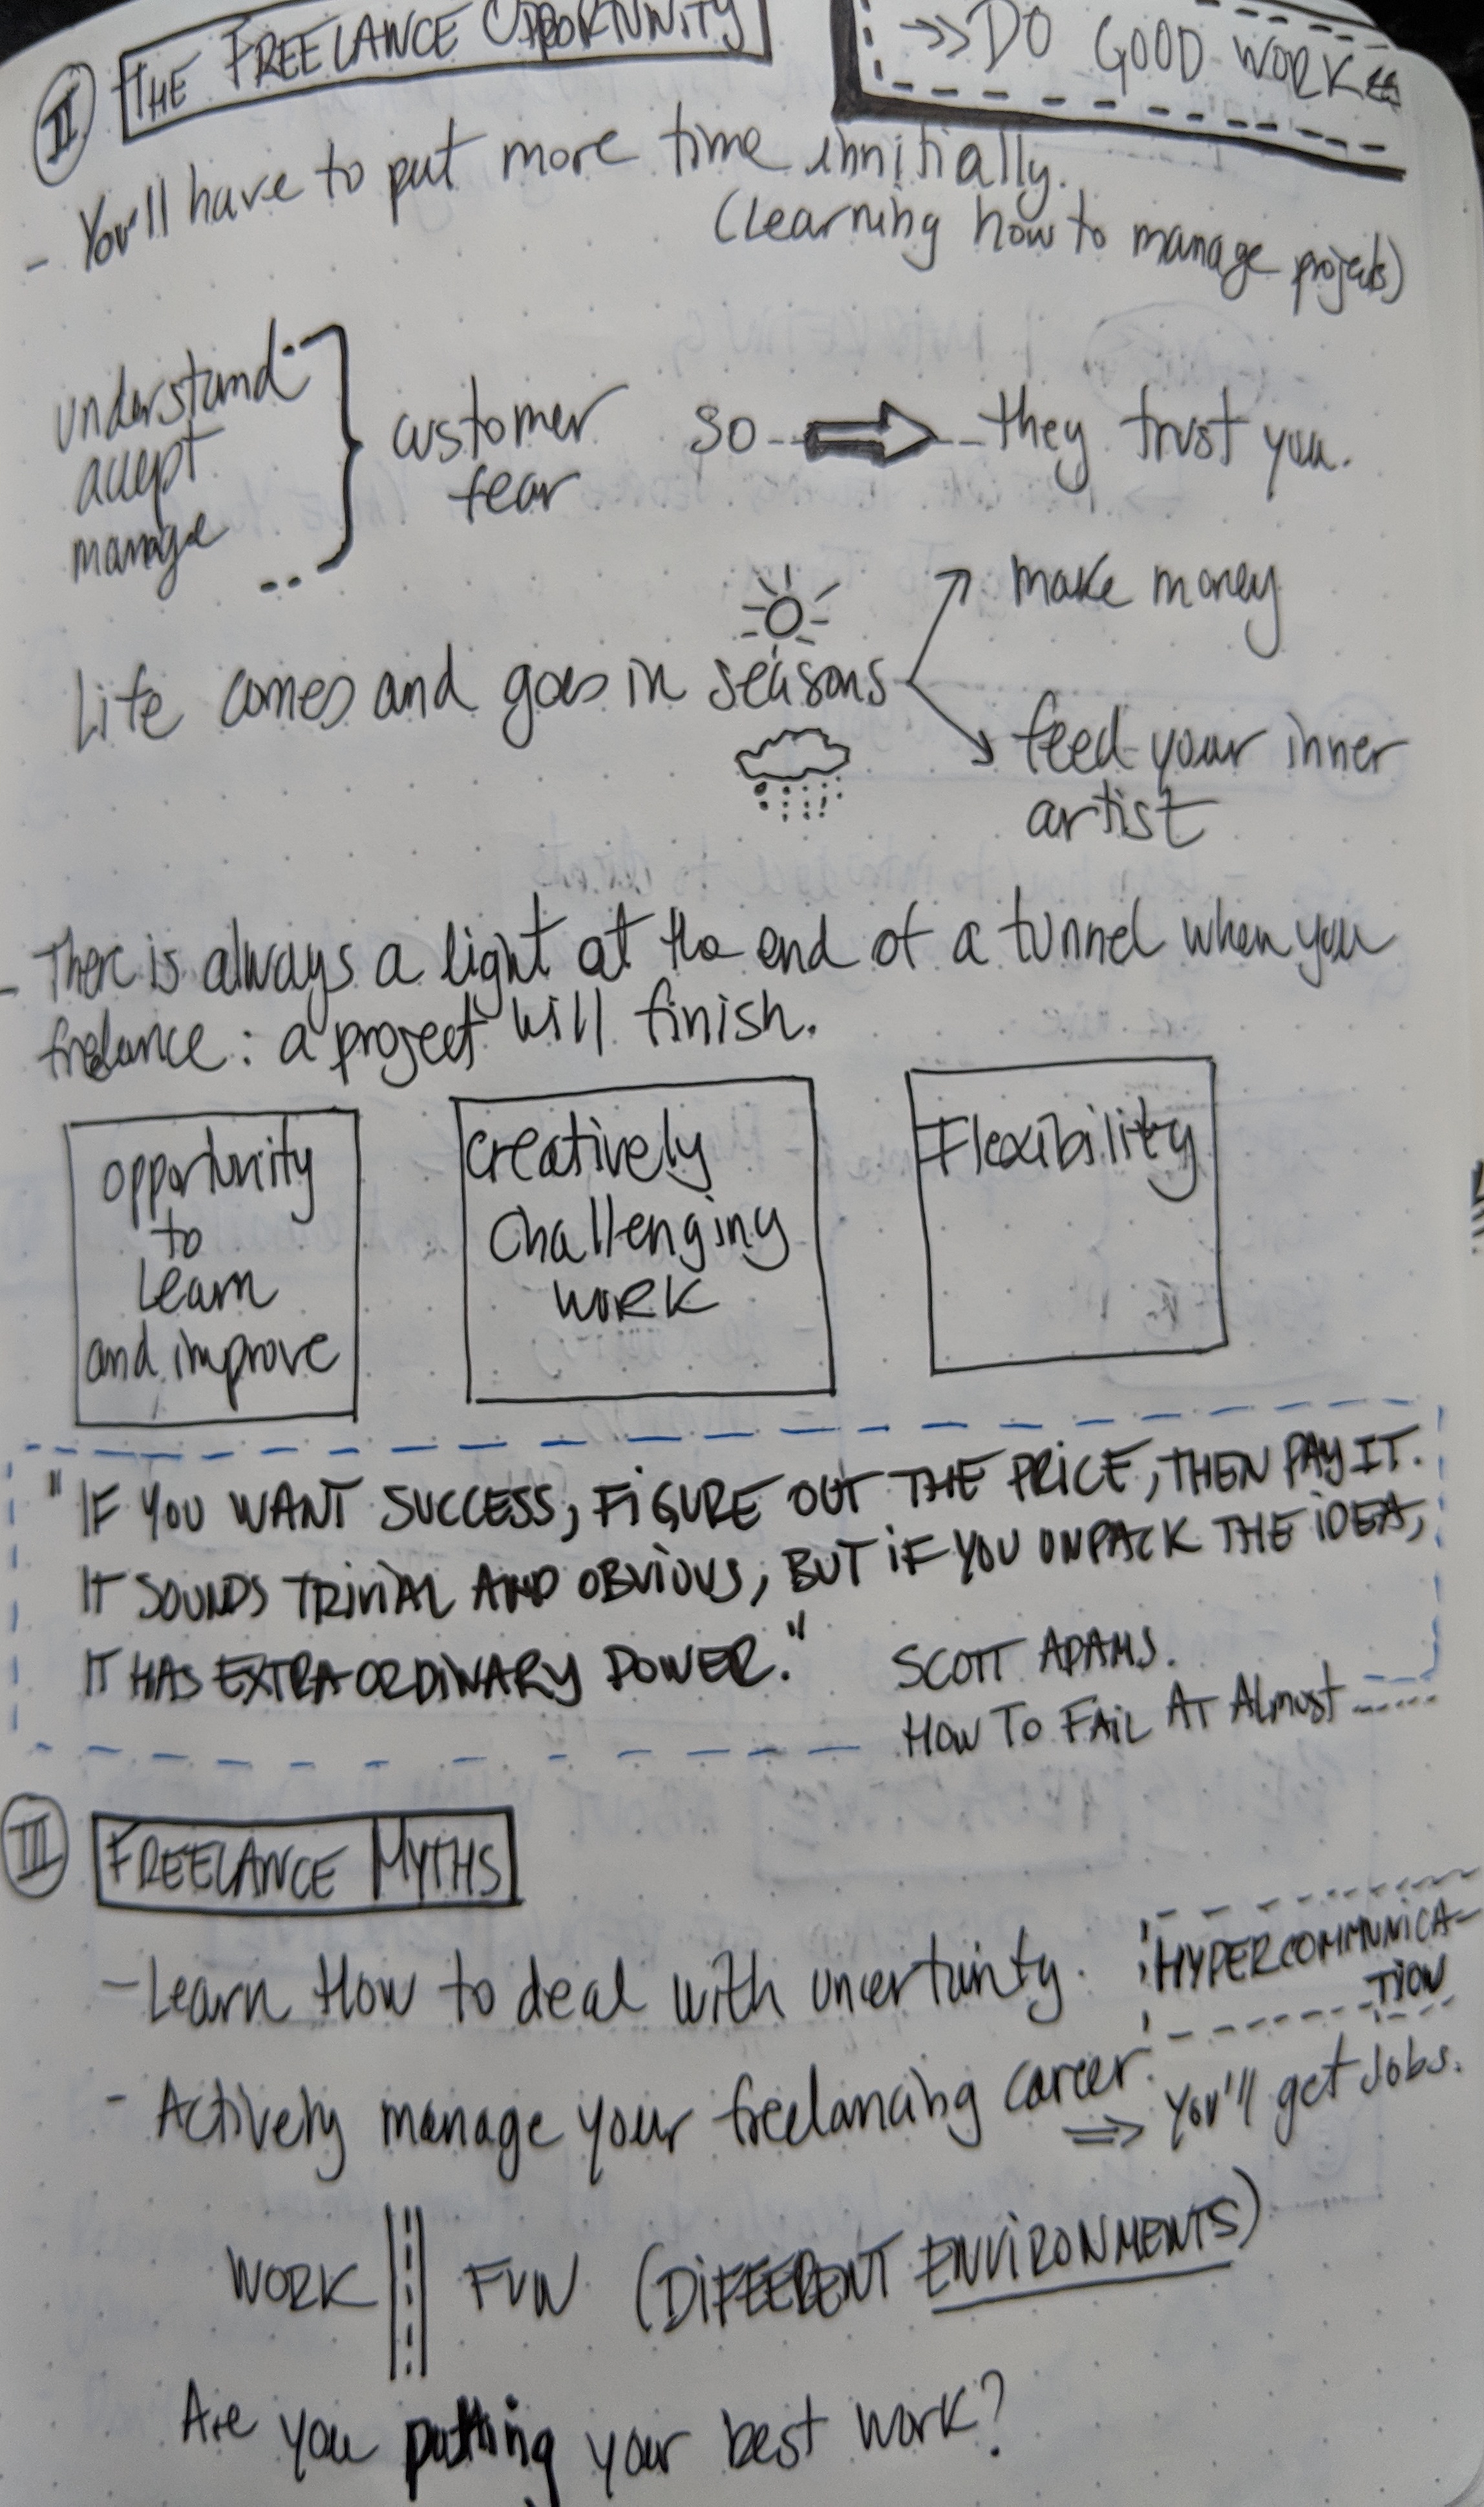 II THE FREELANCE OPPORTUNITY
→>> DO GOOD WORK <<
- You'll have to put more time innitially.
(learning how to manage projects)
understand
accept
manage
customer
fear
so
they trust you.
make money
Life comes and goes in seasons
feed your inner
artist
- There is always a light at the end of a tunnel when you
freelance: a project will finish.
opportunity
to
learn
and improve
creatively
challenging
work
Flexibility
"IF YOU WANT SUCCESS, FIGURE OUT THE PRICE, THEN PAY IT.
IT SOUNDS TRIVIAL AND OBVIOUS, BUT IF YOU UNPACK THE IDEA,
IT HAS EXTRAORDINARY POWER."
SCOTT ADAMS.
HOW TO FAIL AT Almost ......
III FREELANCE MYTHS
- Learn How to deal with uncertainty.
HYPERCOMMUNICA-
TION
- Actively manage your freelancing career.
⇒ You'll get Jobs.
WORK FUN (DIFFERENT ENVIRONMENTS)
Are you putting your best work?